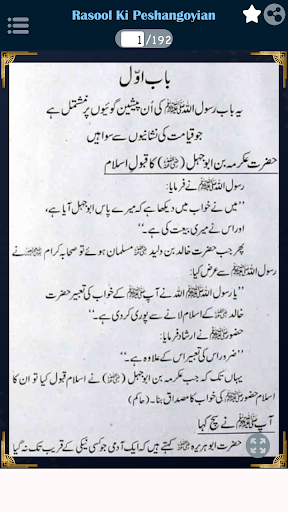 Rasool Ki Peshangoyian
1 /192
باب اوّل
یہ باب رسول اللہ ﷺ کی اُن پیشین گوئیوں پر مشتمل ہے
جو قیامت کی نشانیوں سے سوا ہیں
حضرت عکرمہ بن ابو جہل (ؓ) کا قبولِ اسلام
رسول اللہ ﷺ نے فرمایا:
”میں نے خواب میں دیکھا ہے کہ میرے پاس ابو جہل آیا ہے،
اور اس نے میری بیعت کی ہے۔“
پھر جب حضرت خالد بن ولید ؓ مسلمان ہوئے تو صحابہ کرام ؓ نے
رسول اللہ ﷺ سے عرض کیا:
”یا رسول اللہ اللہ نے آپ ﷺ کے خواب کی تعبیر حضرت
خالد ؓ کے اسلام لانے سے پوری کر دی ہے۔“
حضور ﷺ نے ارشاد فرمایا:
”ضرور اس کی تعبیر اس کے علاوہ ہے۔“
یہاں تک کہ جب عکرمہ بن ابو جہل (ؓ) نے اسلام قبول کیا تو ان کا
اسلام حضور ﷺ کی خواب کا مصداق بنا۔ (حاکم)
آپ ﷺ نے سچ کہا
حضرت ابو ہریرہ ؓ کہتے ہیں کہ ایک آدمی جو کسی نیکی کے قریب تک نہ گیا